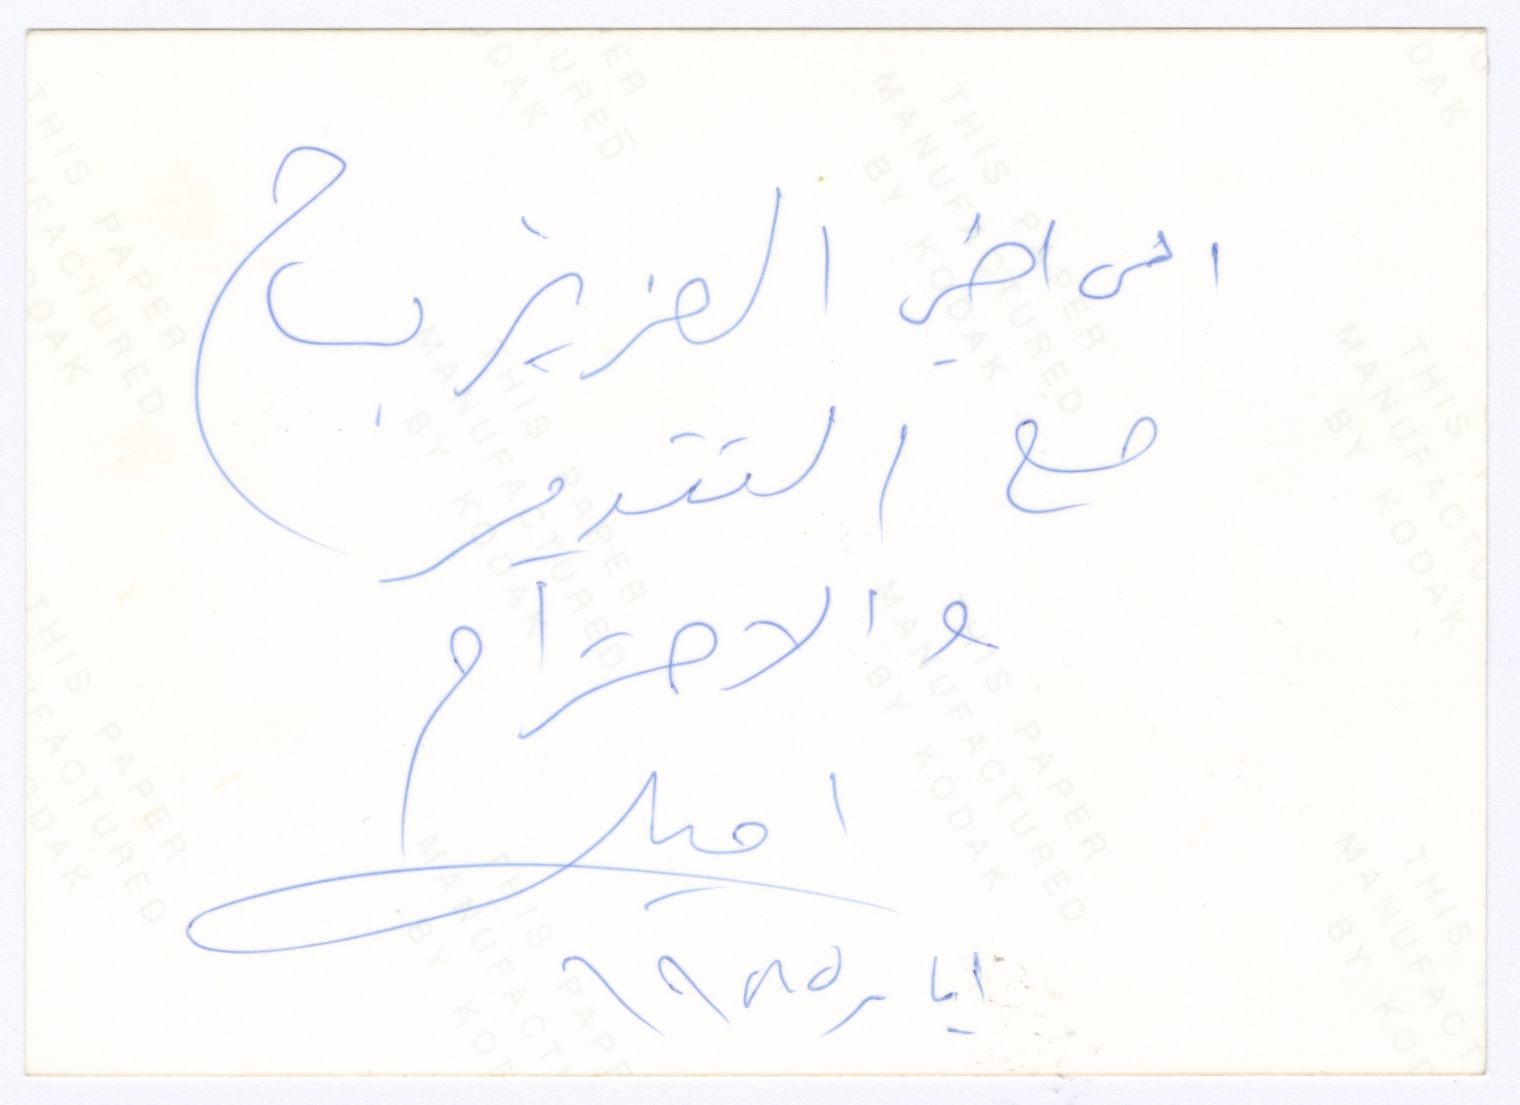 الى اخي العزيز
مع التقدير
و الاحترام
اميل
ايار ١٩٨٥
THIS PAPER
MANUFACTURED
BY KODAK